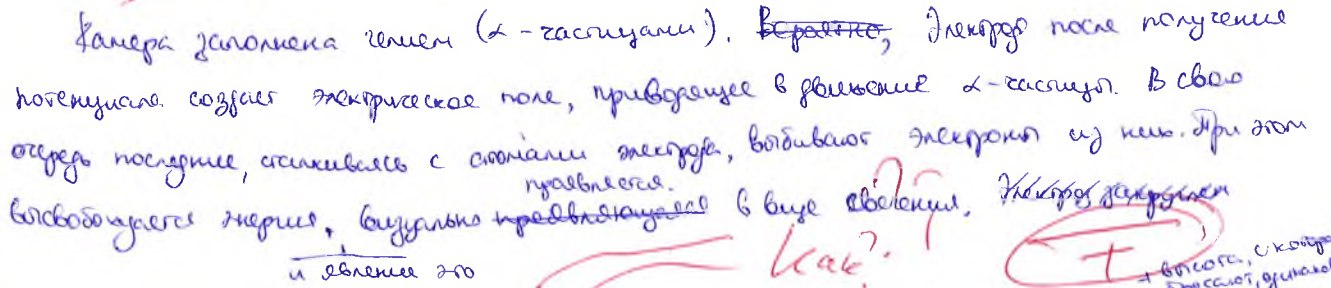 Камера заполнена гелием (α-частицами). Вероятно, Электрод после получения
потенциала создает электрическое поле, приводящее в движение α-частицы. В свою
очередь последние, сталкиваясь с атомами электрода, выбивают электроны из них. При этом
проявляется.
высвобождается энергия, визуально проявляющаяся в виде свечения. Электрод закруглен
и явление это
Как?
+ высота, с котор